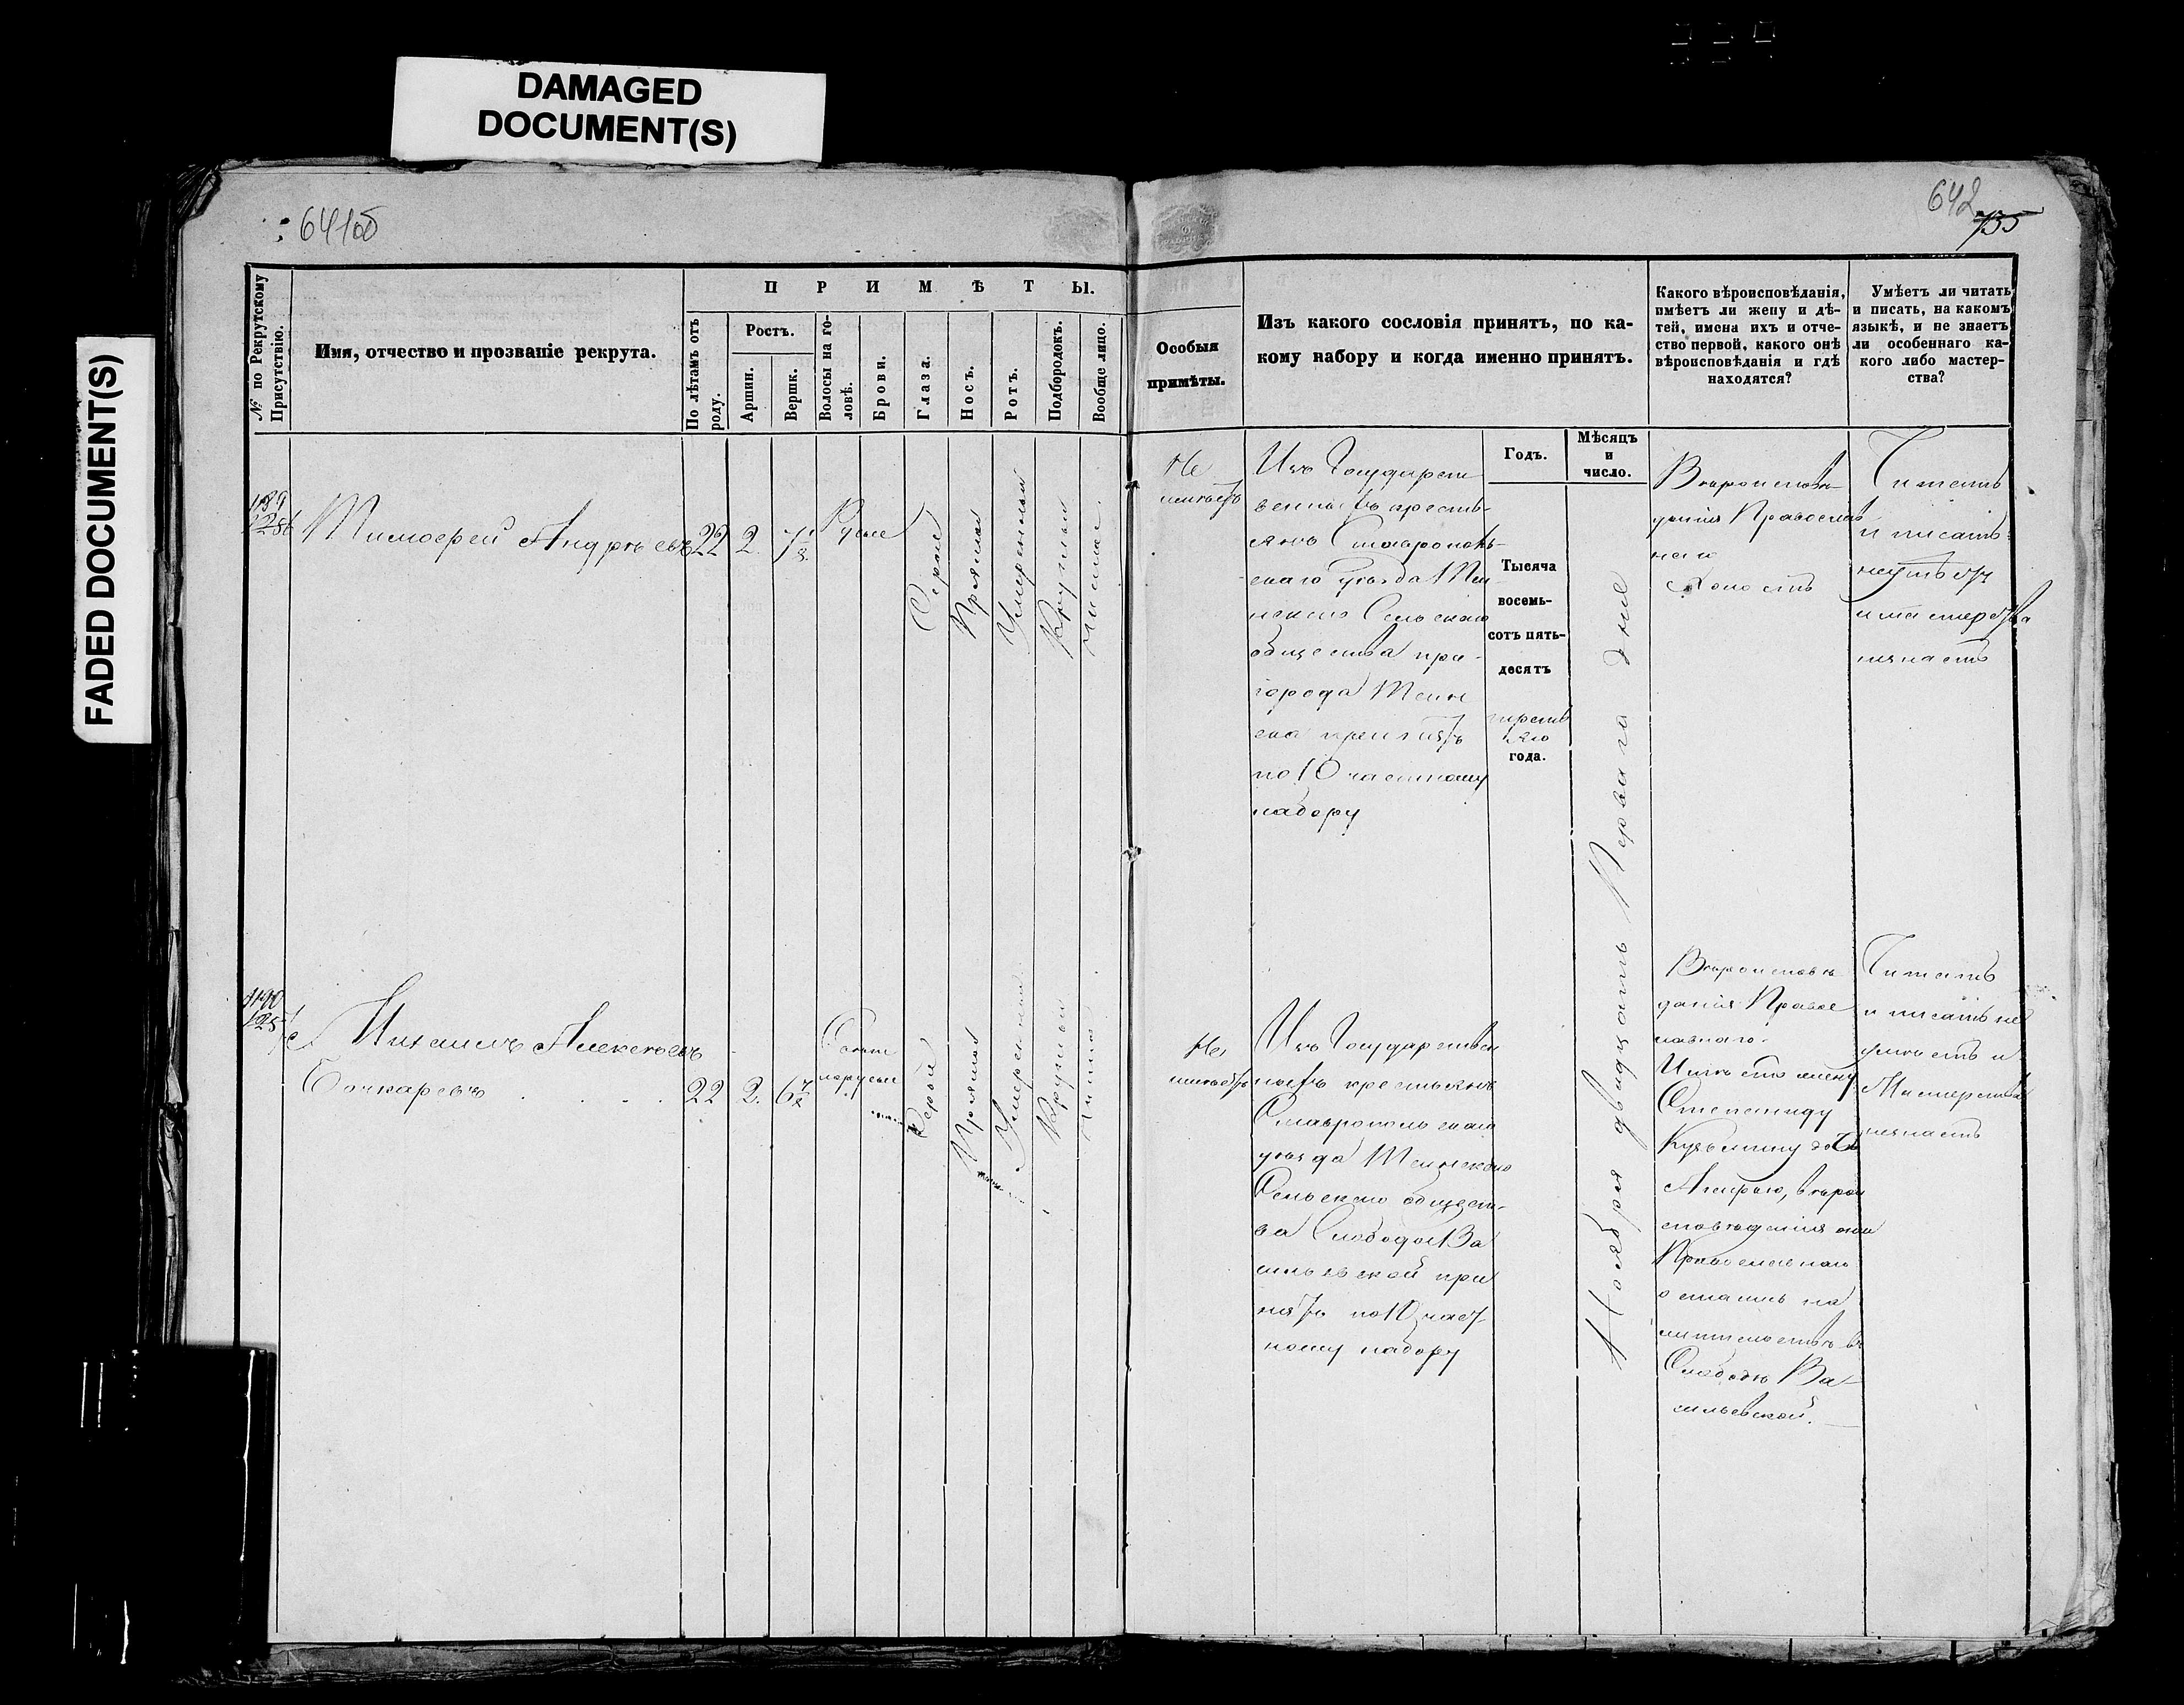 DAMAGED
DOCUMENT(S)
FADED DOCUMENT(S)
641об
642
735
№ по Рекрутскому
Присутствію.
Имя, отчество и прозваніе рекрута.
ПРИМѢТЫ.
По лѣтамъ отъ
роду.
Ростъ.
Аршин.
Вершк.
Волосы на го-
ловѣ.
Брови.
Глаза.
Носъ.
Ротъ.
Подбородокъ.
Вообще лицо.
Особыя
примѣты.
Изъ какого сословія принятъ, по ка-
кому набору и когда именно принятъ.
Какого вѣроисповѣданія,
имѣетъ ли жену и дѣ-
тей, имена ихъ и отче-
ство первой, какого онѣ
вѣроисповѣданія и гдѣ
находятся?
Умѣетъ ли читать
и писать, на какомъ
языкѣ, и не знаетъ
ли особеннаго ка-
кого либо мастер-
ства?
Годъ.
Мѣсяцъ
и
число.
1189
Тимофей Андреевъ
22
2.
7 1/8
Русые
Серые
Прямой
Умеренный
Круглый
Чистое
Не
имеетъ
Изъ Государст
венныхъ кресть-
янъ Ставрополь-
скаго уезда Тиин-
скаго Сельскаго
общества при-
города Тиин
ска принятъ
по 10 частному
набору
Тысяча
восемь-
сотъ пять-
десятъ
третьяго
года.
Ноября двадцать Перваго дня
Вероисповѣ-
данія Православ
наго
Холостъ
Читать
и писать
неумѣетъ
и мастерства
незнаетъ
1190
Михаилъ Алексѣевъ
Бочкаревъ
22
2.
6 7/8
Светло
русые
Серые
Прямой
Умеренный
Круглый
Чистое
Не
имеетъ
Изъ Государствен
ныхъ крестьянъ
Ставропольскаго
уезда Тиинскаго
Сельскаго общест-
ва Слободы Ва
сильевской при
нятъ по 10 част
ному набору
Вероисповѣ
данія Правос
лавнаго.
Имѣетъ жену
Степаниду
Кузьмину дочь
Агафью, вѣрои
сповѣданія они
Православнаго
остались на
жительствѣ въ
Слободѣ Ва-
сильевской.
Читать
и писать не
умѣетъ и
Мастерства
незнаетъ